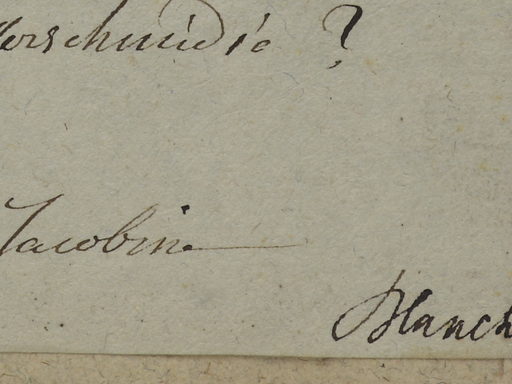 erschmidio ?
Jacobin
Blanch